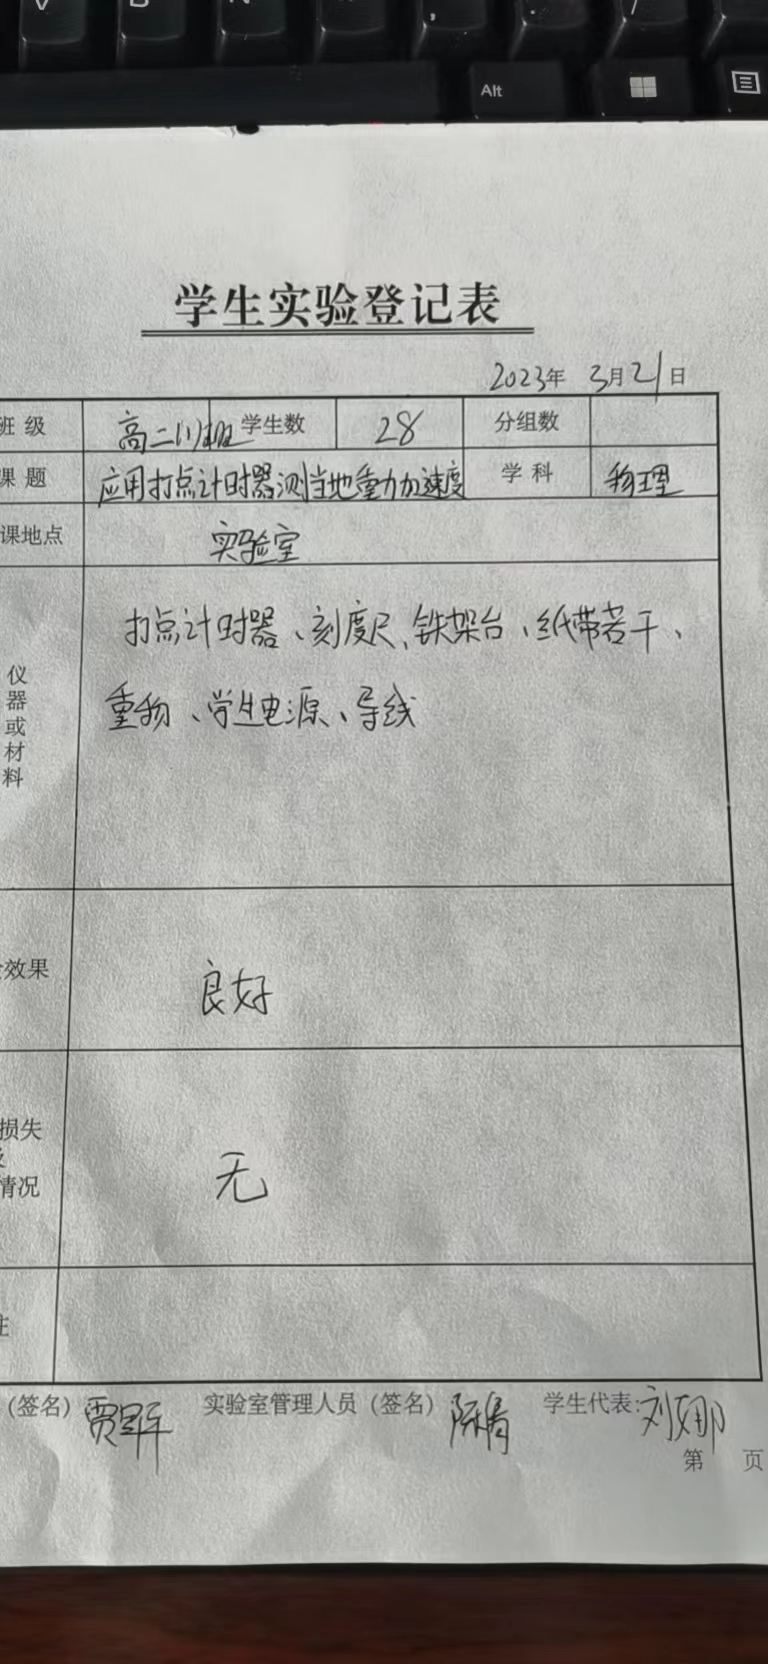 Alt
学生实验登记表
2023年 3月21日
班 级 高二(1)班 学生数 28 分组数
课 题 应用打点计时器测当地重力加速度 学 科 物理
课地点 实验室
仪器或材料 打点计时器、刻度尺、铁架台、纸带若干、
重物、学生电源、导线
效果 良好
损失
情况 无
注
(签名) 实验室管理人员(签名) 陈倩 学生代表:刘娜
第 页